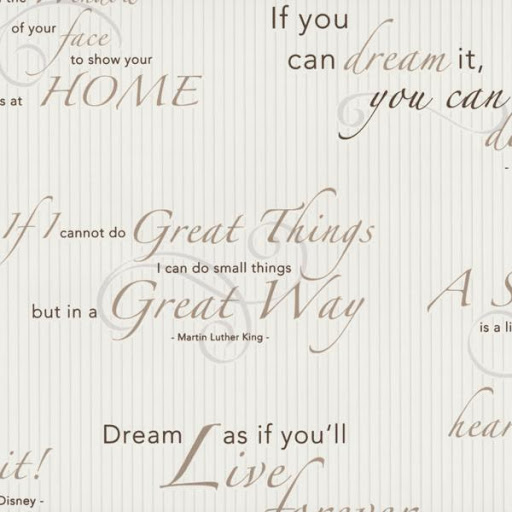 of your face
to show your
s at HOME
If you
can dream it,
you can
If I cannot do Great Things
I can do small things
but in a Great Way
- Martin Luther King -
A S
is a li
hear
Dream as if you'll
Live
forever
it!
Disney -